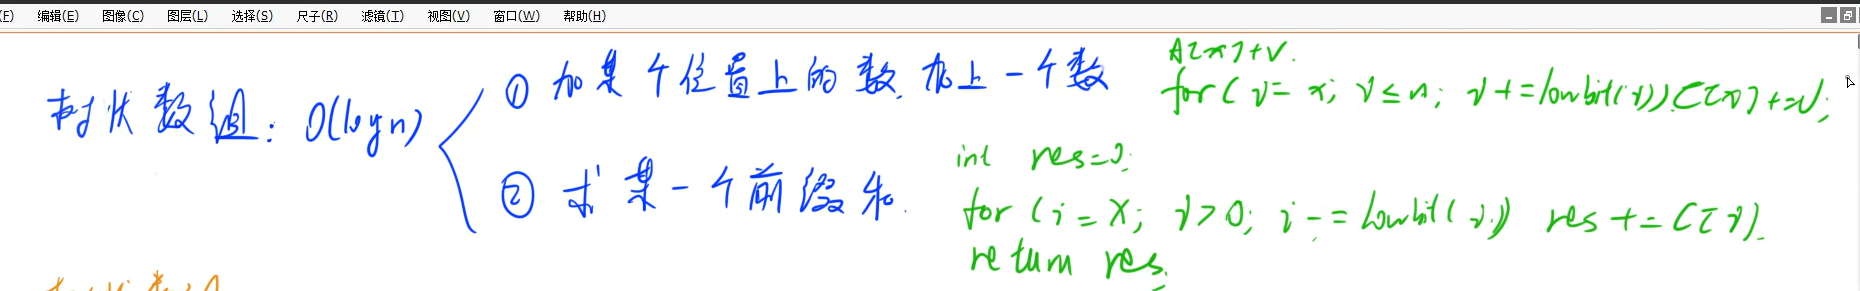 (F) 编辑(E) 图像(C) 图层(L) 选择(S) 尺子(R) 滤镜(T) 视图(V) 窗口(W) 帮助(H)
树状数组: O(logn)
① 加某个位置上的数, 加上一个数
A[x]+V.
for(i=x; i≤n; i+=lowbit(i)) C[x]+=V;
② 求某一个前缀和.
int res=0;
for(i=x; i>0; i-=lowbit(i)) res+=C[i].
return res.